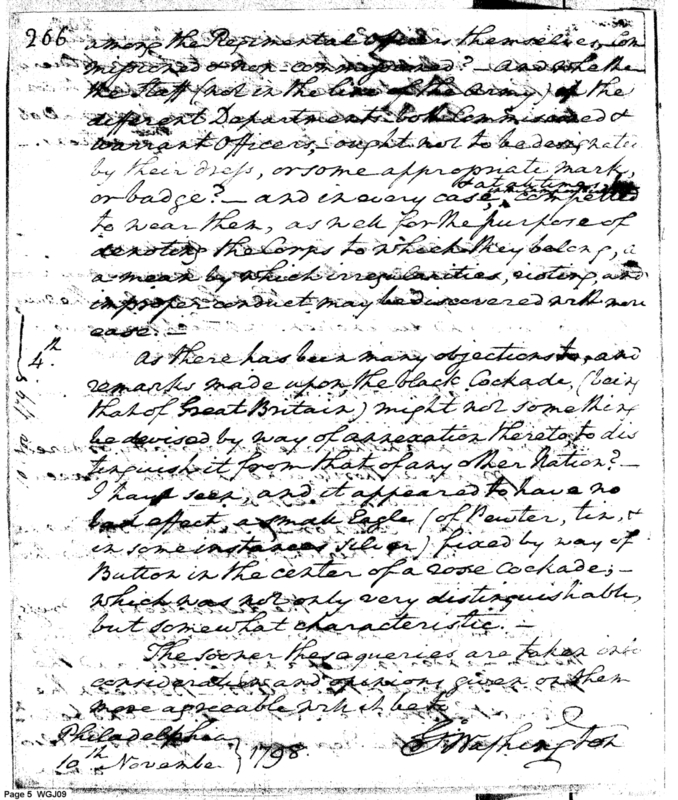 266
among the Regimental Officers themselves, Com
missioned & non-commissioned? – And whether
the Staff (not in the line of the Army) of the
different Departments both Commissioned &
warrant Officers, ought not to be designated
by their dress, or some appropriate mark,
or badge? – and in every case, & at all times compelled
to wear them, as well for the purpose of
denoting the Corps to which they belong, as
a mean by which irregularities, rioting, and
improper conduct may be discovered with more
ease. –
4th. As there has been many objections to, and
remarks made upon, the black Cockade, (being
that of Great Britain) might not something
be devised by way of annexation thereto to dis
tinguish it from that of any other Nation? –
I have seen, and it appeared to have no
bad effect, a small Eagle (of Pewter, tin, &
in some instances silver) fixed by way of
Button in the center of a rose Cockade; –
which was not only very distinguishable,
but somewhat characteristic. –
The sooner these queries are taken into
consideration and opinions given on them
more agreeable will it be to
Philadelphia
10th November } 1798.
Go: Washington
Page 5 WGJ09